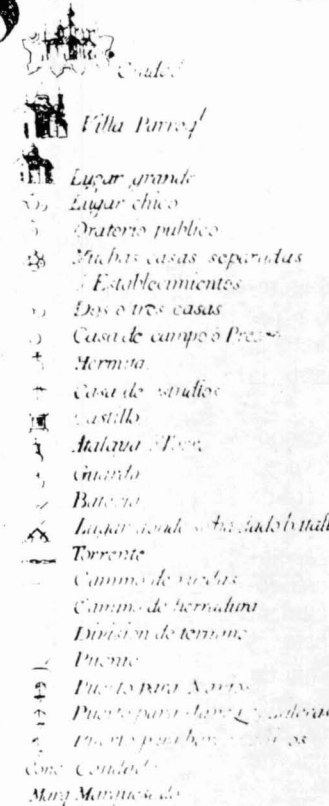 Ciudad
Villa Parroql
Lugar grande
Lugar chico
Oratorio publico
Muchas casas separadas
Establecimientos
Dos o tres casas
Casa de campo ó
Hermita
Casa de estudios
Castillo
Atalaya
Guarda
Bateria
Lugar donde se ha dado batall
Torrente
Camino de ruedas
Camino de herradura
Division de termino
Puente
Puerto para Navios
Puerto para
Puerto para
Cond. Condado
Marq Marquesado